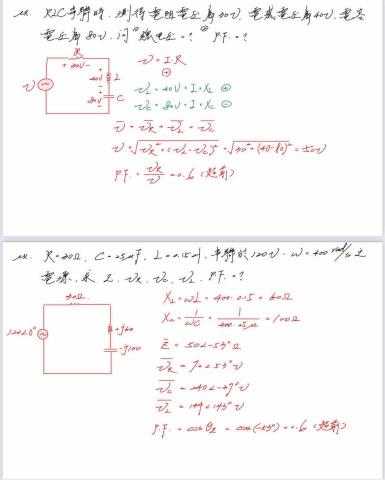 ex. RLC串聯時, 測得電阻電壓為30V, 電感電壓為40V, 電容
電壓為80V, 問①總電壓=? ② P.F.=?
R
+ 30V -
V
40V
L
80V
C
V = I·R
VL = 40V = I·XL ⊕
VC = 80V = I·XC ⊖
V = VR + VL + VC
V = √VR² + (VL - VC)² = √30² + (40-80)² = 50V
P.F. = VR/V = 0.6 (超前)
ex. R=30Ω, C=25μF, L=0.15H, 串聯於120V, ω=400 rad/s 之
電源, 求 Z, VR, VC, VL, P.F.=?
30Ω
120∠0°
j60
-j100
XL = ωL = 400·0.15 = 60Ω
XC = 1/ωC = 1/400·25μ = 100Ω
Z = 50∠-53° Ω
VR = 72∠53° V
VC = 240∠-37° V
VL = 144∠143° V
P.F. = cosθZ = cos(-53°) = 0.6 (超前)